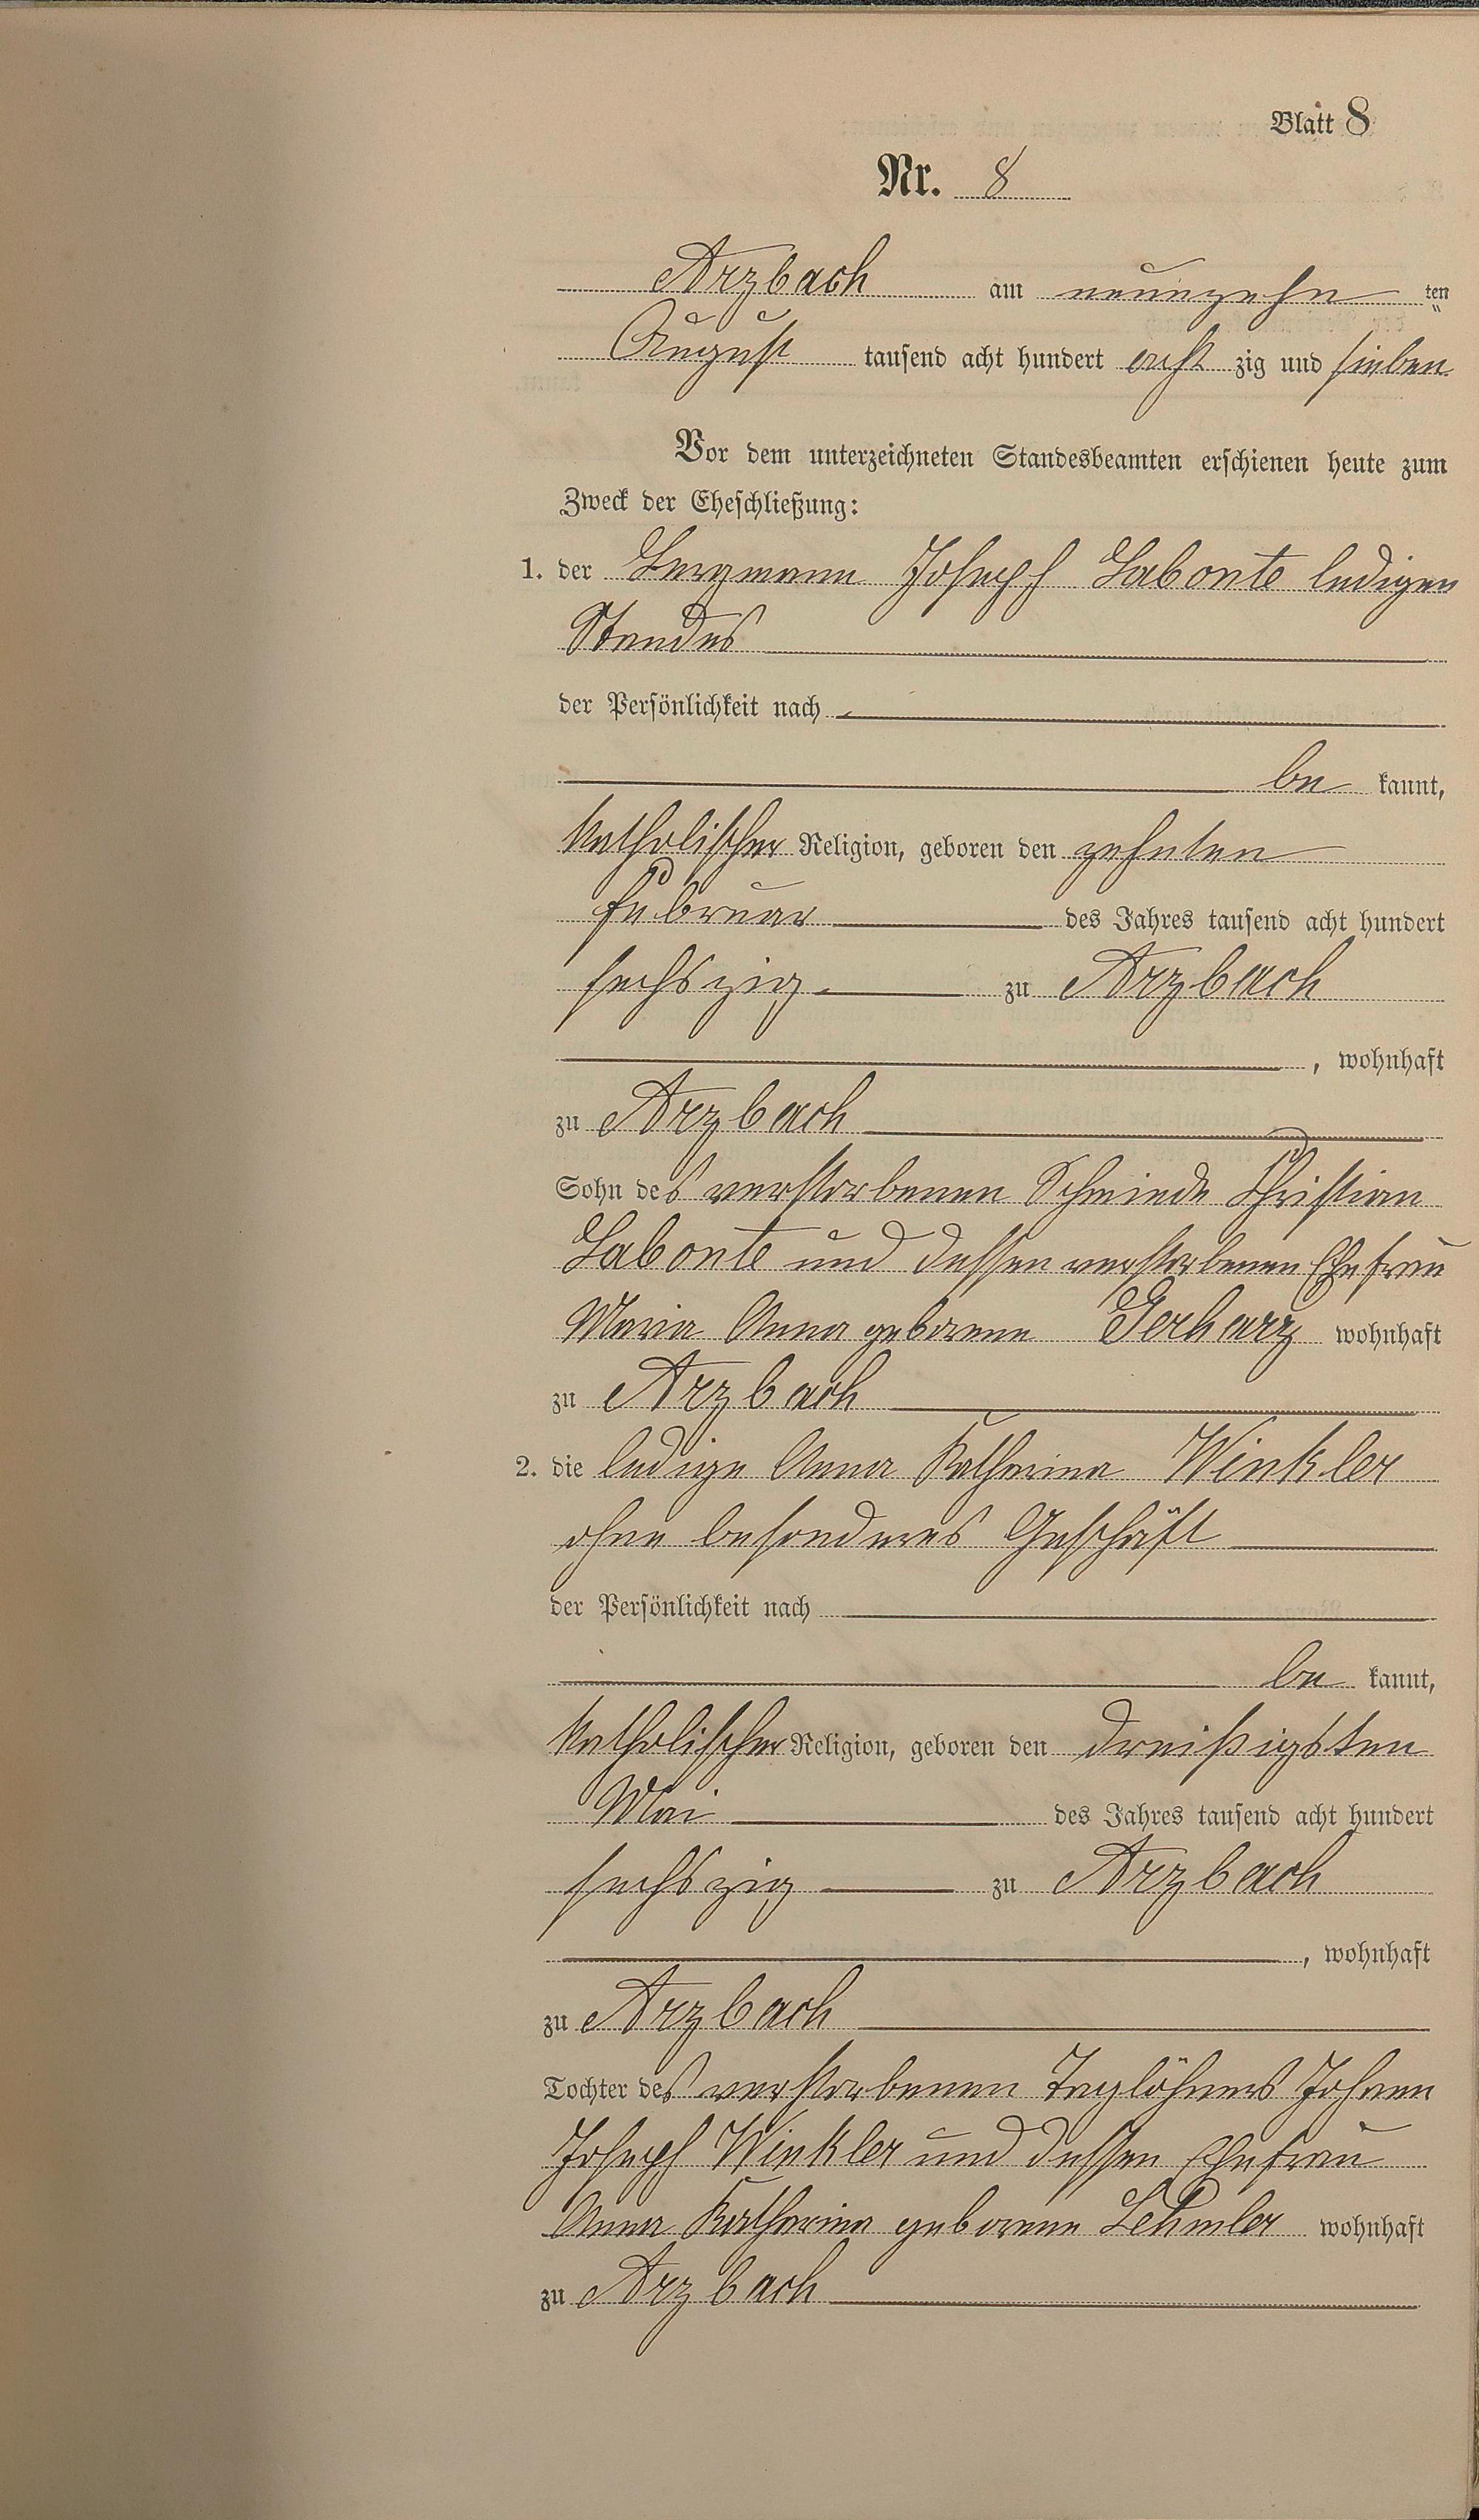 Blatt 8
Nr. 8
Arzbach am neunzehn ten
August tausend acht hundert acht zig und sieben
Vor dem unterzeichneten Standesbeamten erschienen heute zum
Zweck der Eheschließung:
1. der Bergmann Joseph Labonte ledigen
Standes
der Persönlichkeit nach
be kannt,
katholischer Religion, geboren den zehnten
Februar des Jahres tausend acht hundert
sechszig zu Arzbach
, wohnhaft
zu Arzbach
Sohn des verstorbenen Schmiede Christian
Labonte und dessen verstorbenen Ehefrau
Maria Anna geborene Gerharz wohnhaft
zu Arzbach
2. die ledige Anna Katharina Winkler
ohne besonderes Geschäft
der Persönlichkeit nach
be kannt,
katholischer Religion, geboren den dreißigsten
Mai des Jahres tausend acht hundert
sechszig zu Arzbach
, wohnhaft
zu Arzbach
Tochter des verstorbenen Taglöhners Johann
Joseph Winkler und dessen Ehefrau
Anna Katharina geborene Lehmler wohnhaft
zu Arzbach